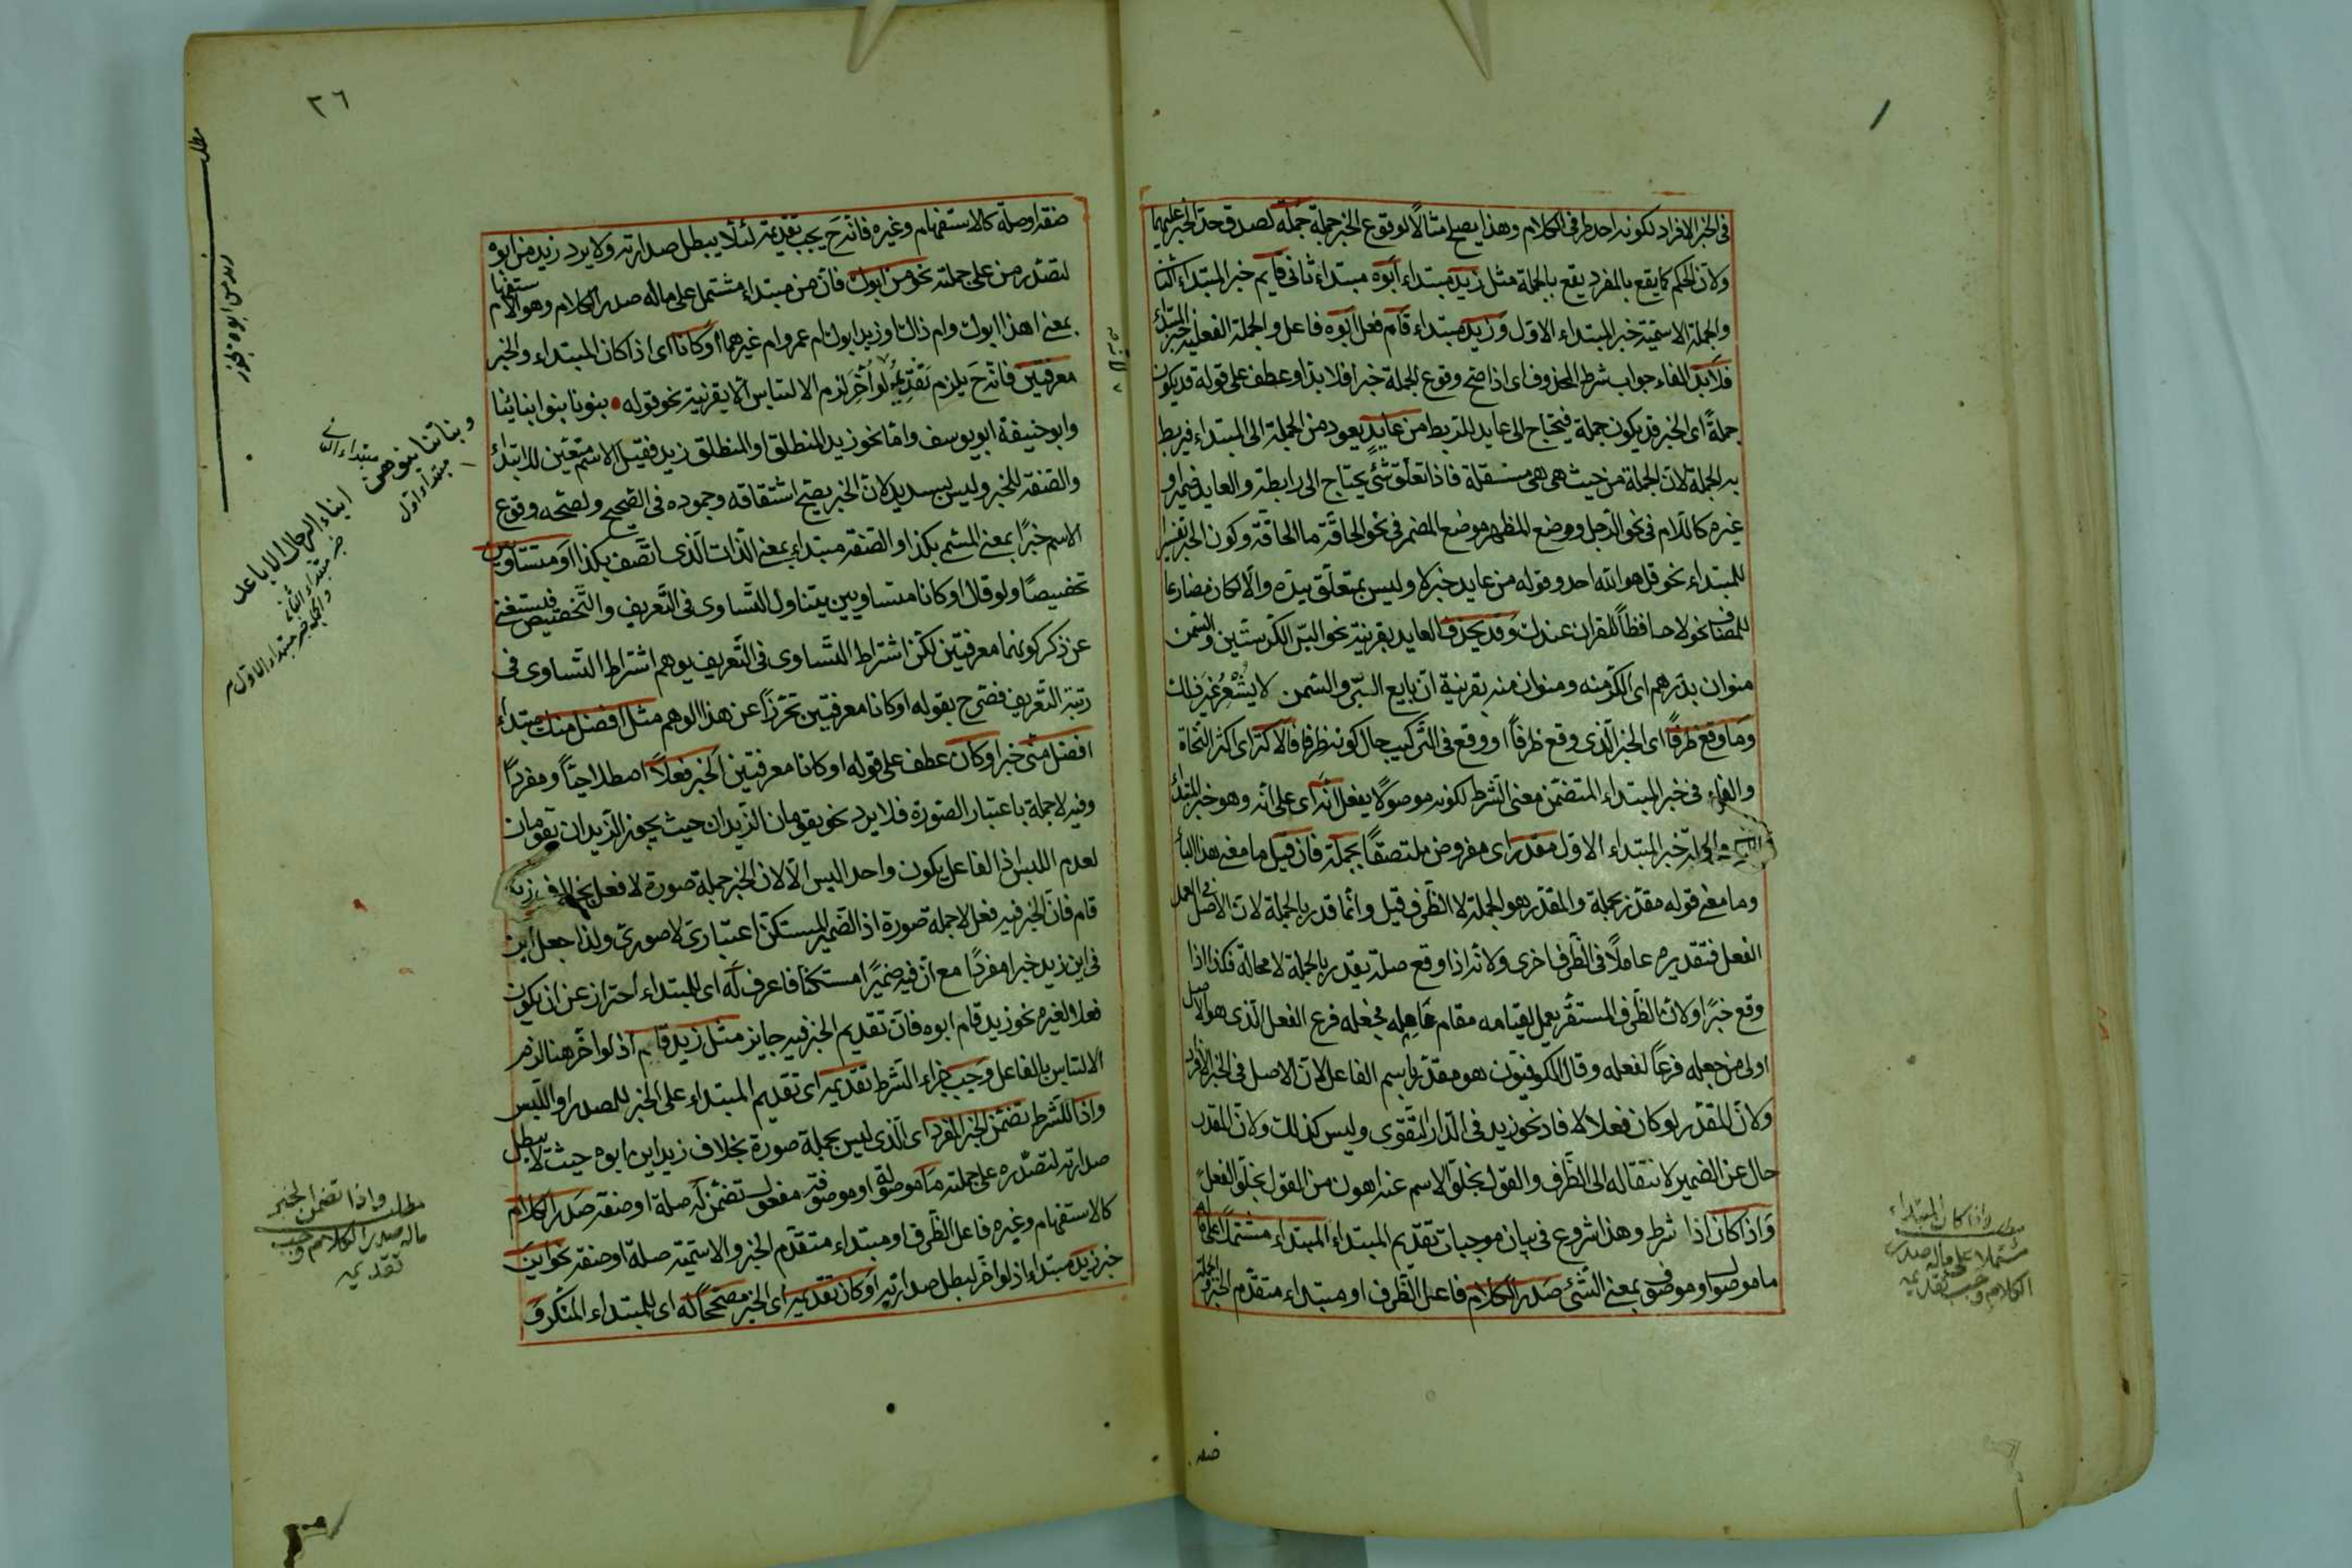 في الخبر الافراد لكونه احد طرفي الكلام وهذا يصلح مثالا لوقوع الخبر جملة جملة لصدق حد الخبر عليهما
ولان الحكم كما يقع بالمفرد يقع بالجملة مثل زيد مبتداء ابوه مبتداء ثاني قايم خبر المبتداء الثنا
والجملة الاسمية خبر المبتداء الاول وزيد مبتداء قام فعل ابوه فاعل والجملة الفعلية خبر المبتداء
فلا بد الفاء جواب شرط المحذوف اى اذا صح وقوع الجملة خبرا فلا بد او عطف على قوله قد يكون
جملةً اى الخبر قد يكون جملة فيحتاج الى عايد للربط من عايدٍ يعود من الجملة الى المبتداء فيربط
به الجملة لان الجملة من حيث هي هي مستقلة فاذا تعلق شئ يحتاج الى رابطة والعايد ضمير او
غيره كاللام في نحو الرجل ووضع المظهر موضع المضمر في نحو الحاقة ما الحاقة وكون الخبر تفسيرا
للمبتداء نحو قل هو الله احد وقوله من عايد خبر لا وليس بمتعلق ببدّ والا لكان مضارعا
للمضاف نحو لا حافظاً للقران عندك وقد يحذف العايد بقرينة نحو البرّ الكر بستين والسمن
منوان بدرهم اى الكر منه ومنوان منه بقرينة ان بايع البر والسمن لا يُسَعِّرُ غير ذلك
وما وقع ظرفاً اى الخبر الذى وقع ظرفاً او وقع في التركيب حال كونه ظرفا فالاكثر اى اكثر النحاة
والفاء في خبر المبتداء المتضمن معنى الشرط لكونه موصولا يفعل انه اى على انه وهو خبر المبتداء
والجملة خبر المبتداء الاول مقدر اى مفروض ملتصقاً بجملة فان قيل ما معنى هذا الباء
وما معنى قوله مقدر بجملة والمقدر هو الجملة لا الظرف قيل وانما قدر بالجملة لان الاصل في العمل
الفعل فتقديره عاملاً في الظرف احرى ولانه اذا وقع صلة يقدر بالجملة لا محالة فكذا اذا
وقع خبرًا ولان الظرف المستقر يعمل لقيامه مقام عامله فجعله فرع الفعل الذى هو الاصل
اولى من جعله فرعاً لفعله وقال الكوفيون هو مقدر باسم الفاعل لان الاصل في الخبر الافراد
ولان المقدر لو كان فعلا لافاد نحو زيد في الدار التقوى وليس كذلك ولان المقدر
حال عن الضمير لانتقاله الى الظرف والقول بخلو الاسم عنه اهون من القول بخلو الفعل
واذا كان اذا شرط وهذا شروع في بيان موجبات تقديم المبتداء المبتداء مشتملا على ما له
ما موصول او موصوف بمعنى الشئ صدر الكلام فاعل الظرف او مبتداء متقدم الخبر والجملة
مطلب واذا كان المبتداء
مشتملا على ماله صدر
الكلام وجب تقديمه
صفة
٣٦
صفة او صلة كالاستفهام وغيره فانه ح يجب تقديمه لئلا يبطل صدارته ولا يرد زيد من ابوه
لتصدر من على جملته نحو من ابوك فان من مبتداء مشتمل على ماله صدر الكلام وهو الاستفهام
بمعنى اهذا ابوك وام ذاك او زيد ابوك ام عمرو ام غيرهما او كانا اى اذا كان المبتداء والخبر
معرفتين فانه ح يلزم تقديمُه لو أُخّر لزم الالتباس الا بقرينة نحو قوله بنونا بنوا ابنائنا
وابو حنيفة ابو يوسف واما نحو زيد المنطلق او المنطلق زيد فقيل الاسم متعين للابتداء
والصفة للخبر وليس بسديد لان الخبر يصح اشتقاقه وجموده في الصحيح ولصحه وقوع
الاسم خبرًا بمعنى المسمى بكذا والصفة مبتداء بمعنى الذات الذى اتصف بكذا او متساويين
تخصيصًا ولو قال او كانا متساويين يتناول التساوى في التعريف والتخصيص فيستغنى
عن ذكر كونهما معرفتين لكن اشتراط التساوى في التعريف يوهم اشتراط التساوى في
رتبة التعريف فصرح بقوله او كانا معرفتين تحرزاً عن هذا الوهم مثل افضل منك مبتداء
افضل منى خبر او كان عطف على قوله او كانا معرفتين الخبر فعلاً اصطلاحيًا ومفردًا
وفيه لا جملة باعتبار الصورة فلا يرد نحو يقومان الزيدان حيث يجوز الزيدان يقومان
لعدم اللبس اذ الفاعل يكون واحد اليس الا لان الخبر جملة صورة لا فعل بخلاف زيد
قام فان الخبر فيه فعل لا جملة صورة اذ الضمير المستكن اعتبارى لا صورى ولذا جعل اين
في اين زيد خبرا مفردًا مع ان فيه ضميرًا مستكنا فاعرف لَه اى للمبتداء احتراز عن ان يكون
فعلا لغيره نحو زيد قام ابوه فان تقديم الخبر فيه جايز مثل زيد قام اذ لو اخر هنا لزم
الالتباس بالفاعل وجب جزاء الشرط تقديمه اى تقديم المبتداء على الخبر للصدر او اللبس
واذا للشرط تضمن الخبر المفرد اى الذى ليس بجملة صورة بخلاف زيد اين ابوه حيث لا يبطل
صدارته لتصدره على جملته ما موصولة او موصوفة مفعول تضمن لَه صلة او صفة صدر الكلام
كالاستفهام وغيره فاعل الظرف او مبتداء متقدم الخبر والاسمية صلة او صفة نحو اين
خبر زيد مبتداء اذ لو اخر لبطل صدارته او كان تقديمه اى الخبر مصححًا له اى للمبتداء المنكر في
مطلب
زيد من ابوه يجوز
وبناتنا بنوهن ابناء الرجال الاباعد
مبتداء اول
مبتداء الثانى
خبر مبتداء الثانى
والجملة خبر مبتداء الاول
مطلب واذا تضمن الخبر
ماله صدر الكلام وجب
تقديمه